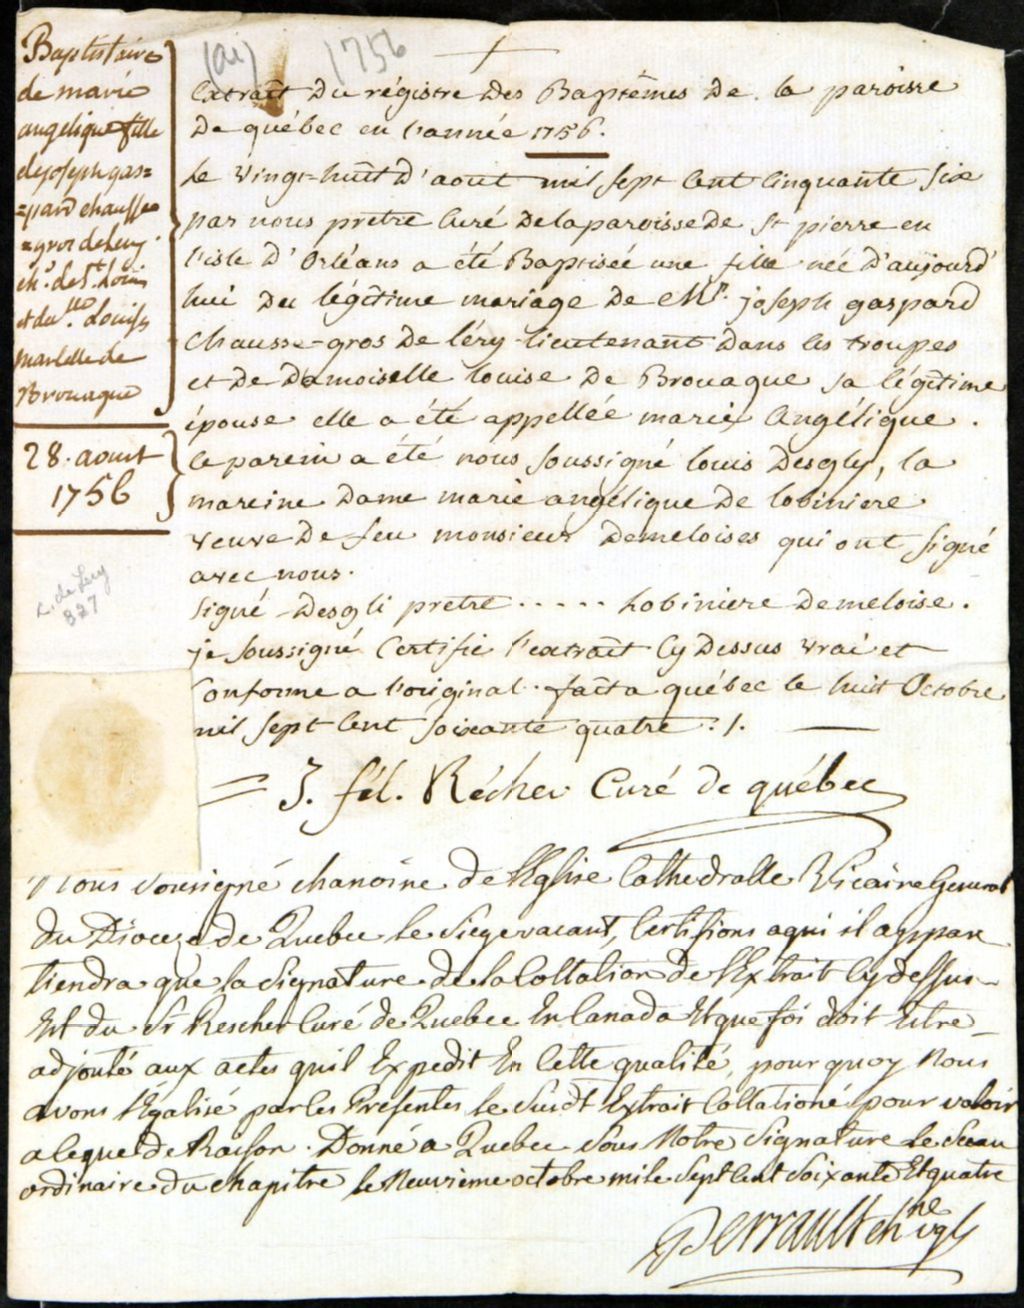 Baptistaire
de marie
angelique fille
de joseph gas=
=pard chausse
=gros de Lery
chr. de St. Louis
et du. lle Louise
Martelle de
Brouague
28. aoust
1756
1756
Extrait Du régistre Des Baptêmes De la paroisse
De québec en l'année 1756.
Le vingt-huit D'aout mil sept Cent Cinquante six
par nous prêtre Curé De la paroisse De St pierre en
l'isle D'Orléans a été Baptisée une fille née D'aujourd'
hui Du légitime mariage De Mr. joseph gaspard
Chausse-gros De léry lieutenant Dans les troupes
et De Damoiselle louise De Brouague sa légitime
épouse elle a été appellée marie Angélique .
le parein a été nous soussigné louis Desgly, la
mareine Dame marie angélique De lobiniere
veuve De feu monsieur Demeloises qui ont signé
avec nous.
signé Desgli prêtre ..... Lobiniere Demeloise.
je soussigné Certifie l'extrait Cy Dessus vrai et
Conforme a l'original. fait a québec le huit Octobre
mil sept Cent soixante quatre ./.
= J. fél. Récher Curé de québec
L. de Lery
827
Nous sousigné chanoine de l'Eglise Cathedralle Vicaire General
du Dioceze de Quebec le Siege vacant, Certifions a qui il appar
tiendra que la signature de la Collation de l'Extrait Cy dessus
Est du Sr Rescher Curé de Quebec En Canada Et que foi doit Estre
adjouté aux actes quil Expedit En Cette qualité, pourquoy Nous
avons l'Egalisé par les Presentes le Susdt Extrait Collationé pour valoir
a leque de Raison. Donné a Quebec sous Notre signature le Sceau
ordinaire du chapitre le Neuvieme octobre mile Sept Cent soixante Et quatre
Perrault chne vg